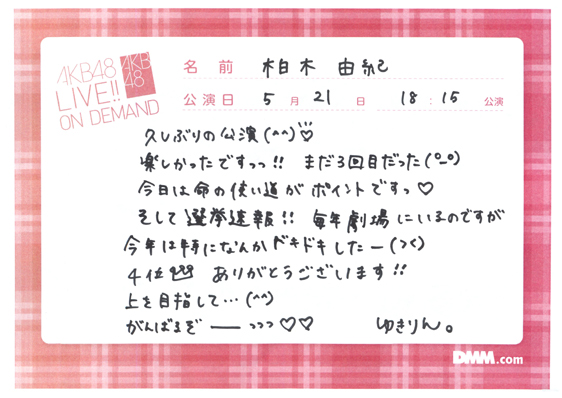 AKB48
LIVE!!
ON DEMAND
AKB
48
名前 柏木 由紀
公演日 5月21日 18:15 公演
久しぶりの公演(^^)♡
楽しかったですっっ!! まだ3回目だった(°_°)
今日は命の使い道がポイントですっ♡
そして選挙速報!!毎年劇場にいるのですが
今年は特になんかドキドキしたー(><)
4位 ありがとうございます!!
上を目指して…(^^)
がんばるぞーーっっっ♡♡ ゆきりん。
DMM.com